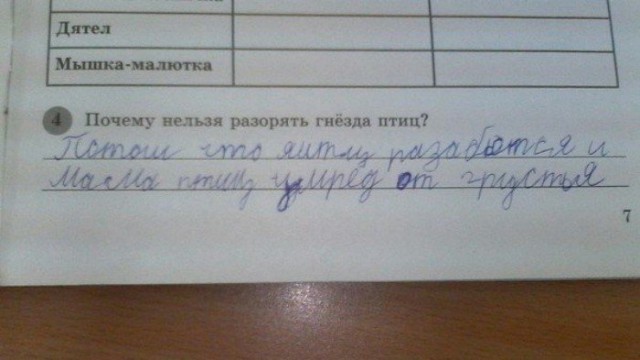 Дятел
Мышка-малютка
4 Почему нельзя разорять гнёзда птиц?
Потом что яитц разабютса и
мама птиц умрёд от грустья
7